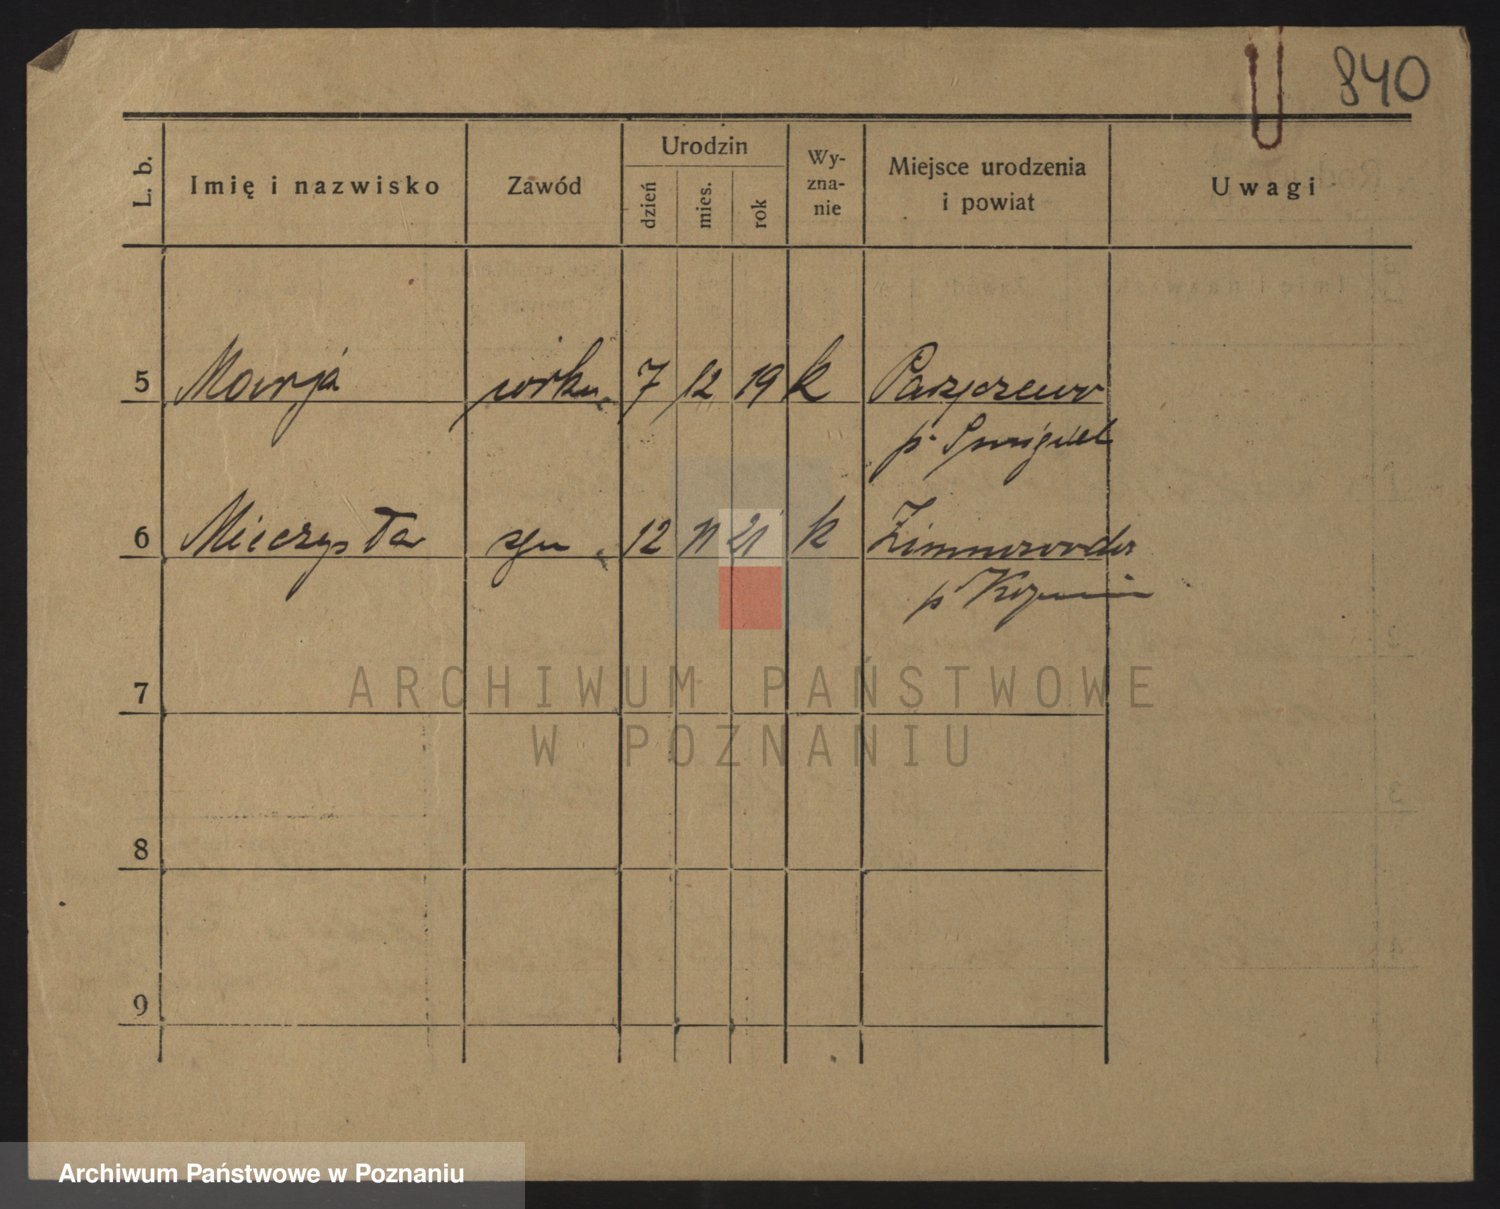 840
L. b.
Imię i nazwisko
Zawód
Urodzin
dzień
mies.
rok
Wy-
zna-
nie
Miejsce urodzenia
i powiat
Uwagi
5 Marja 7 12 19 k
p. Śmigiel
6 Mieczysła syn 12 11 21 k Zimnawoda
p.
7
8
9
ARCHIWUM PAŃSTWOWE
W POZNANIU
Archiwum Państwowe w Poznaniu